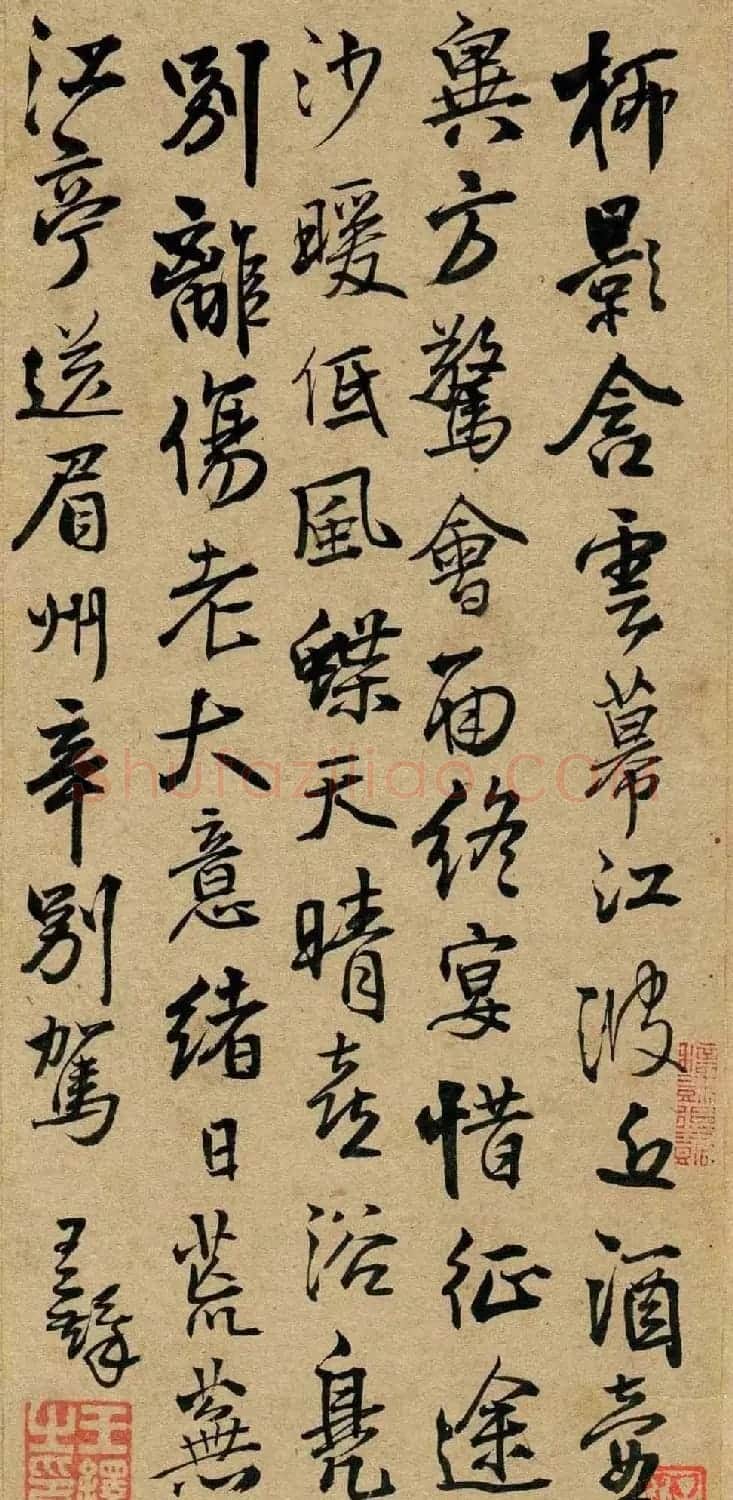 柳影含雲幕江波近酒壺
異方驚會面終宴惜征途
沙暖低風蝶天晴喜浴鳧
別離傷老大意緒日荒蕪
江亭送眉州辛別駕 王鐸
王鐸之印
shufaziliao.COM